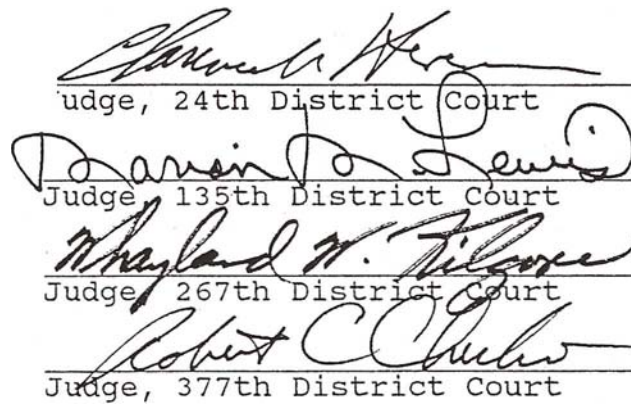 Clarence N.
udge, 24th District Court
Marion M. Lewis
Judge, 135th District Court
Whayland W. Kilgore
Judge, 267th District Court
Robert C
Judge, 377th District Court